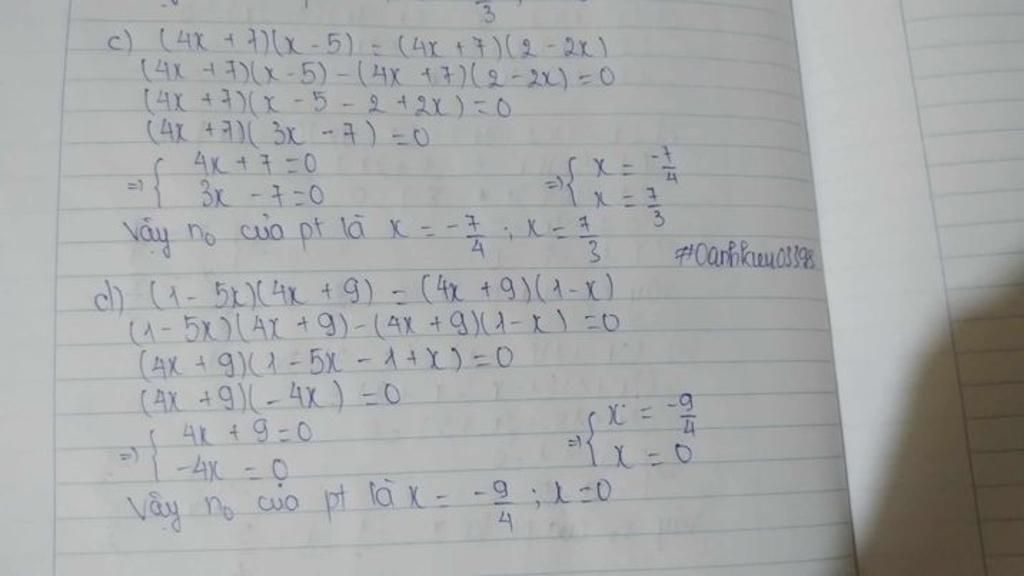 3
c) (4x + 7)(x - 5) = (4x + 7)(2 - 2x)
(4x + 7)(x - 5) - (4x + 7)(2 - 2x) = 0
(4x + 7)(x - 5 - 2 + 2x) = 0
(4x + 7)(3x - 7) = 0
=> { 4x + 7 = 0 => { x = -7/4
3x - 7 = 0 x = 7/3
Vậy no của pt là x = -7/4 ; x = 7/3
d) (1 - 5x)(4x + 9) = (4x + 9)(1 - x)
(1 - 5x)(4x + 9) - (4x + 9)(1 - x) = 0
(4x + 9)(1 - 5x - 1 + x) = 0
(4x + 9)(- 4x) = 0
=> { 4x + 9 = 0 => { x = -9/4
-4x = 0 x = 0
Vậy no của pt là x = -9/4 ; x = 0